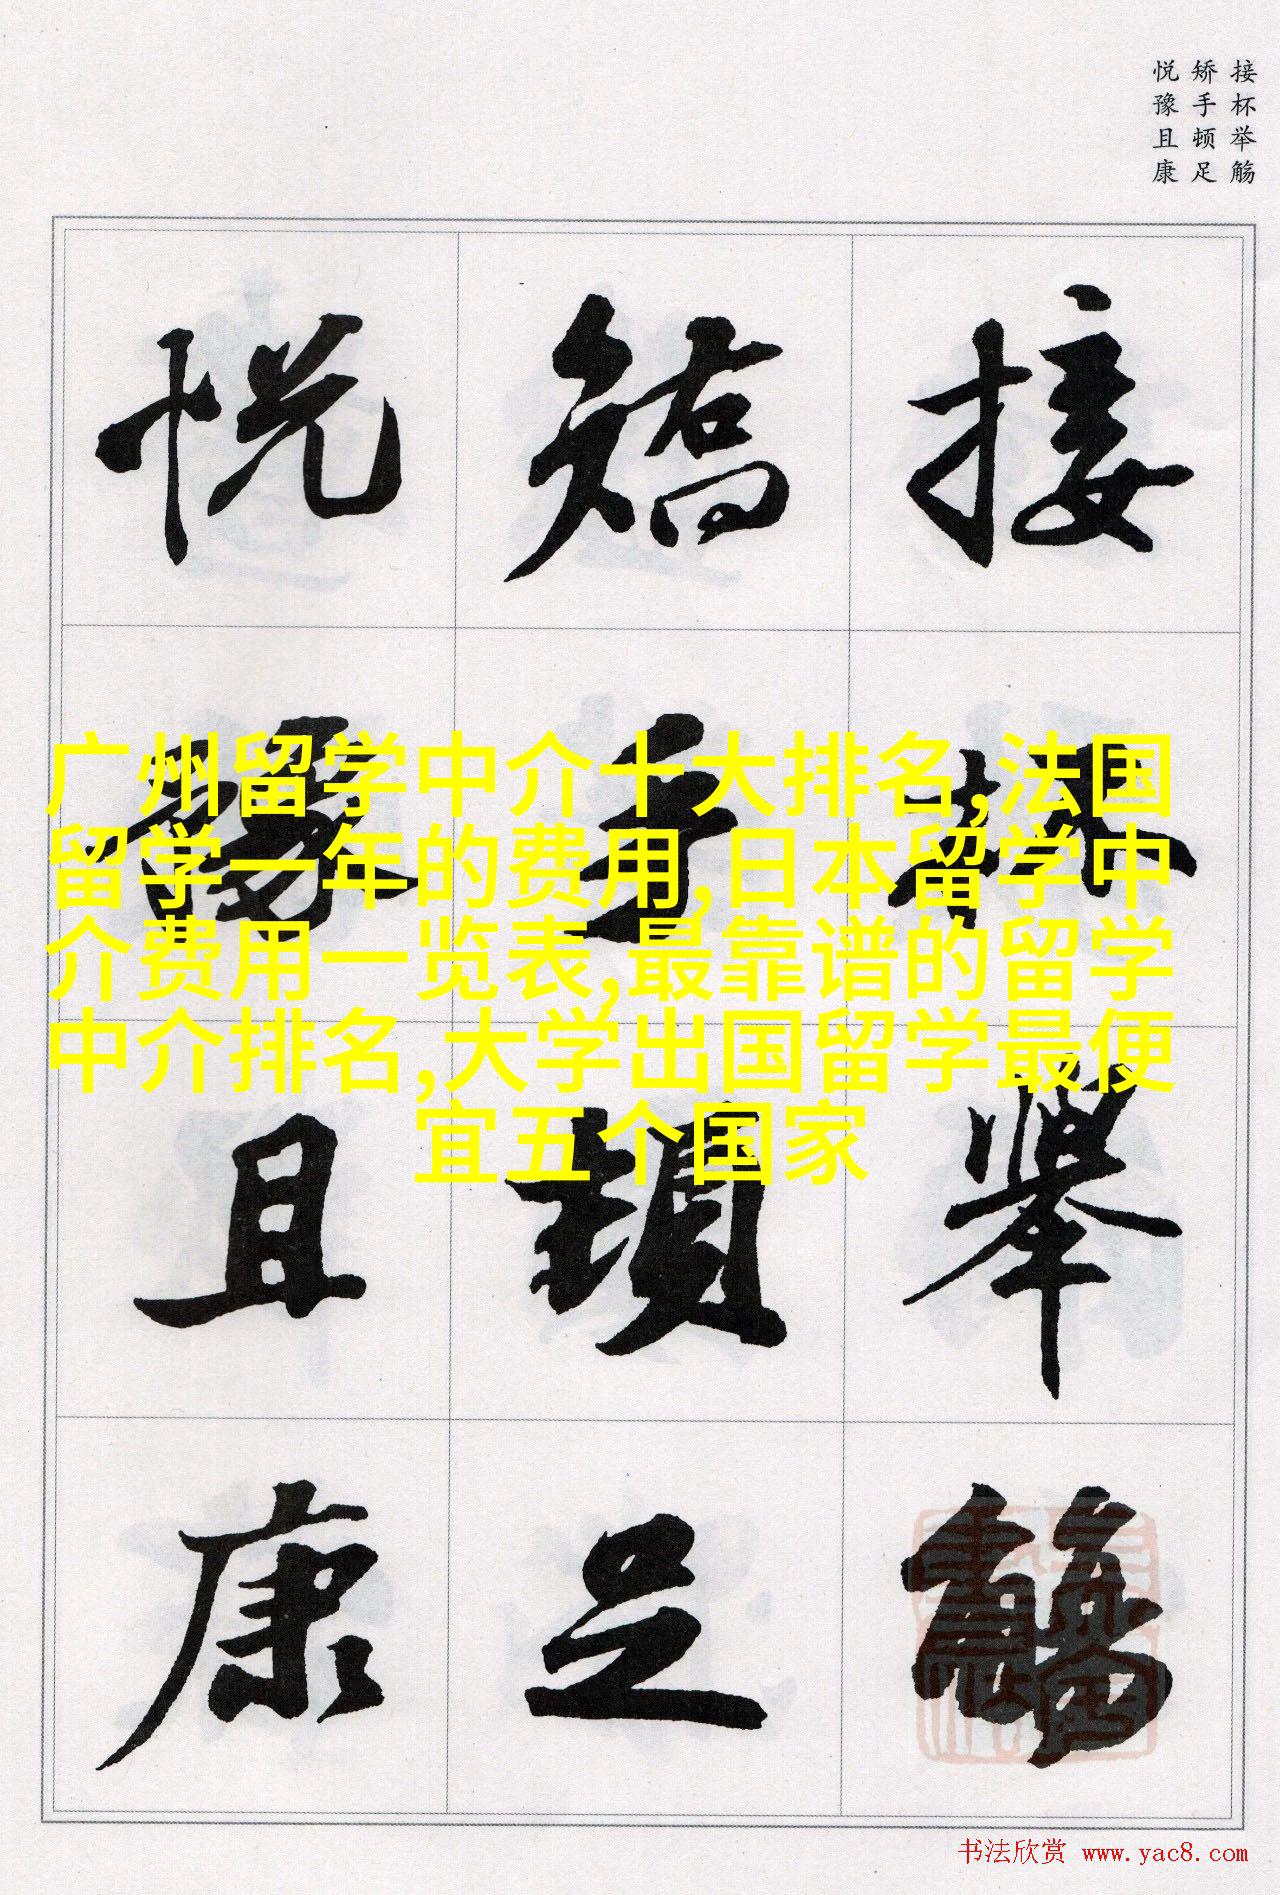 接杯举觞
矫手顿足
悦豫且康
接杯举觞
矫手顿足
悦豫且康
广州留学中介十大排名,法国
留学一年的费用,日本留学中
介费用一览表,最靠谱的留学
中介排名,大学出国留学最便
宜五个国家
书法欣赏 www.yac8.com